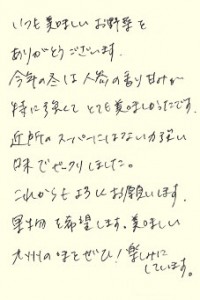 いつも美味しいお野菜を
ありがとうございます。
今年の冬は人参の香り甘みが
特に強くてとても美味しかったです。
近所のスーパーにはない力強い
味でビックリしました。
これからもよろしくお願いします。
果物を希望します。美味しい
九州のぜひ！楽しみに
しています。